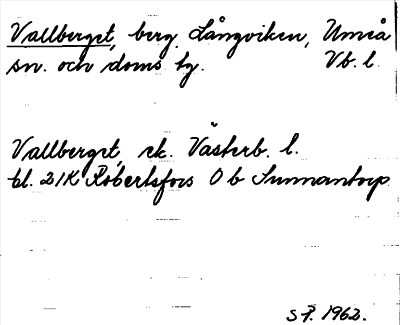 Vallberget, berg, Långviken, Umeå
sn. och doms hg. Vb. l.
Vallberget, ek. Västerb. l.
bl. 21K Robertsfors 0 b Sunnantorp
S P. 1962.